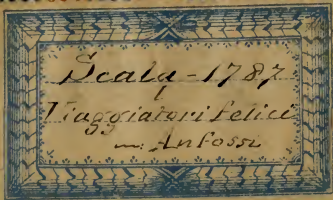 Scala - 1787
I
Viaggiatori felici
m: Anfossi